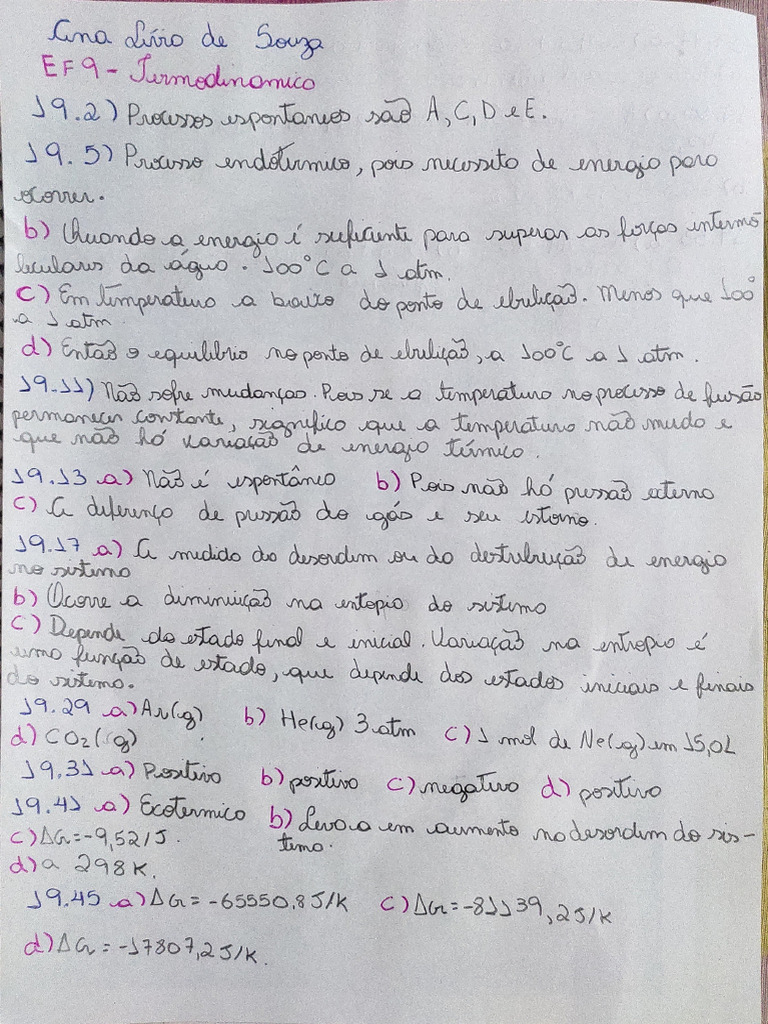 Ana Lívia de Souza
EF9 - Termodinamica
19.2) Processos espontaneos são A, C, D e E.
19.5) Processo endotérmico, pois necessita de energia para
ocorrer.
b) Quando a energia é suficiente para superar as forças intermo
leculares da água. 100°C a 1 atm.
c) Em temperatura a baixo do ponto de ebulição. Menos que 100°
a 1 atm
d) Então o equilibrio no ponto de ebulição, a 100°C a 1 atm.
19.11) Não sofre mudanças. Pois se a temperatura no processo de fusão
permanecer constante, significa que a temperatura não muda e
que não há variação de energia térmica.
19.13 a) Não é espontâneo b) Pois não há pressão externa
c) A diferença de pressão do gás e seu etorno.
19.17 a) A medida da desordem ou da destribuição de energia
no sistema
b) Ocorre a diminuição na entopia do sistema
c) Depende do estado final e inicial. Variação na entropia é
uma função de estado, que depende dos estados iniciais e finais
do sistema.
19.29 a) Ar(g) b) He(g) 3 atm c) 1 mol de Ne(g) em 15,0L
d) CO2(g)
19.31 a) Positivo b) positivo c) negativo d) positivo
19.41 a) Exotermico b) Leva a em aumento na desordem do sis-
tema.
c) ΔG = -9,521J.
d) a 298 K.
19.45 a) ΔG = -65550,8 J/K c) ΔG = -81139,2 J/K
d) ΔG = -17807,2 J/K.